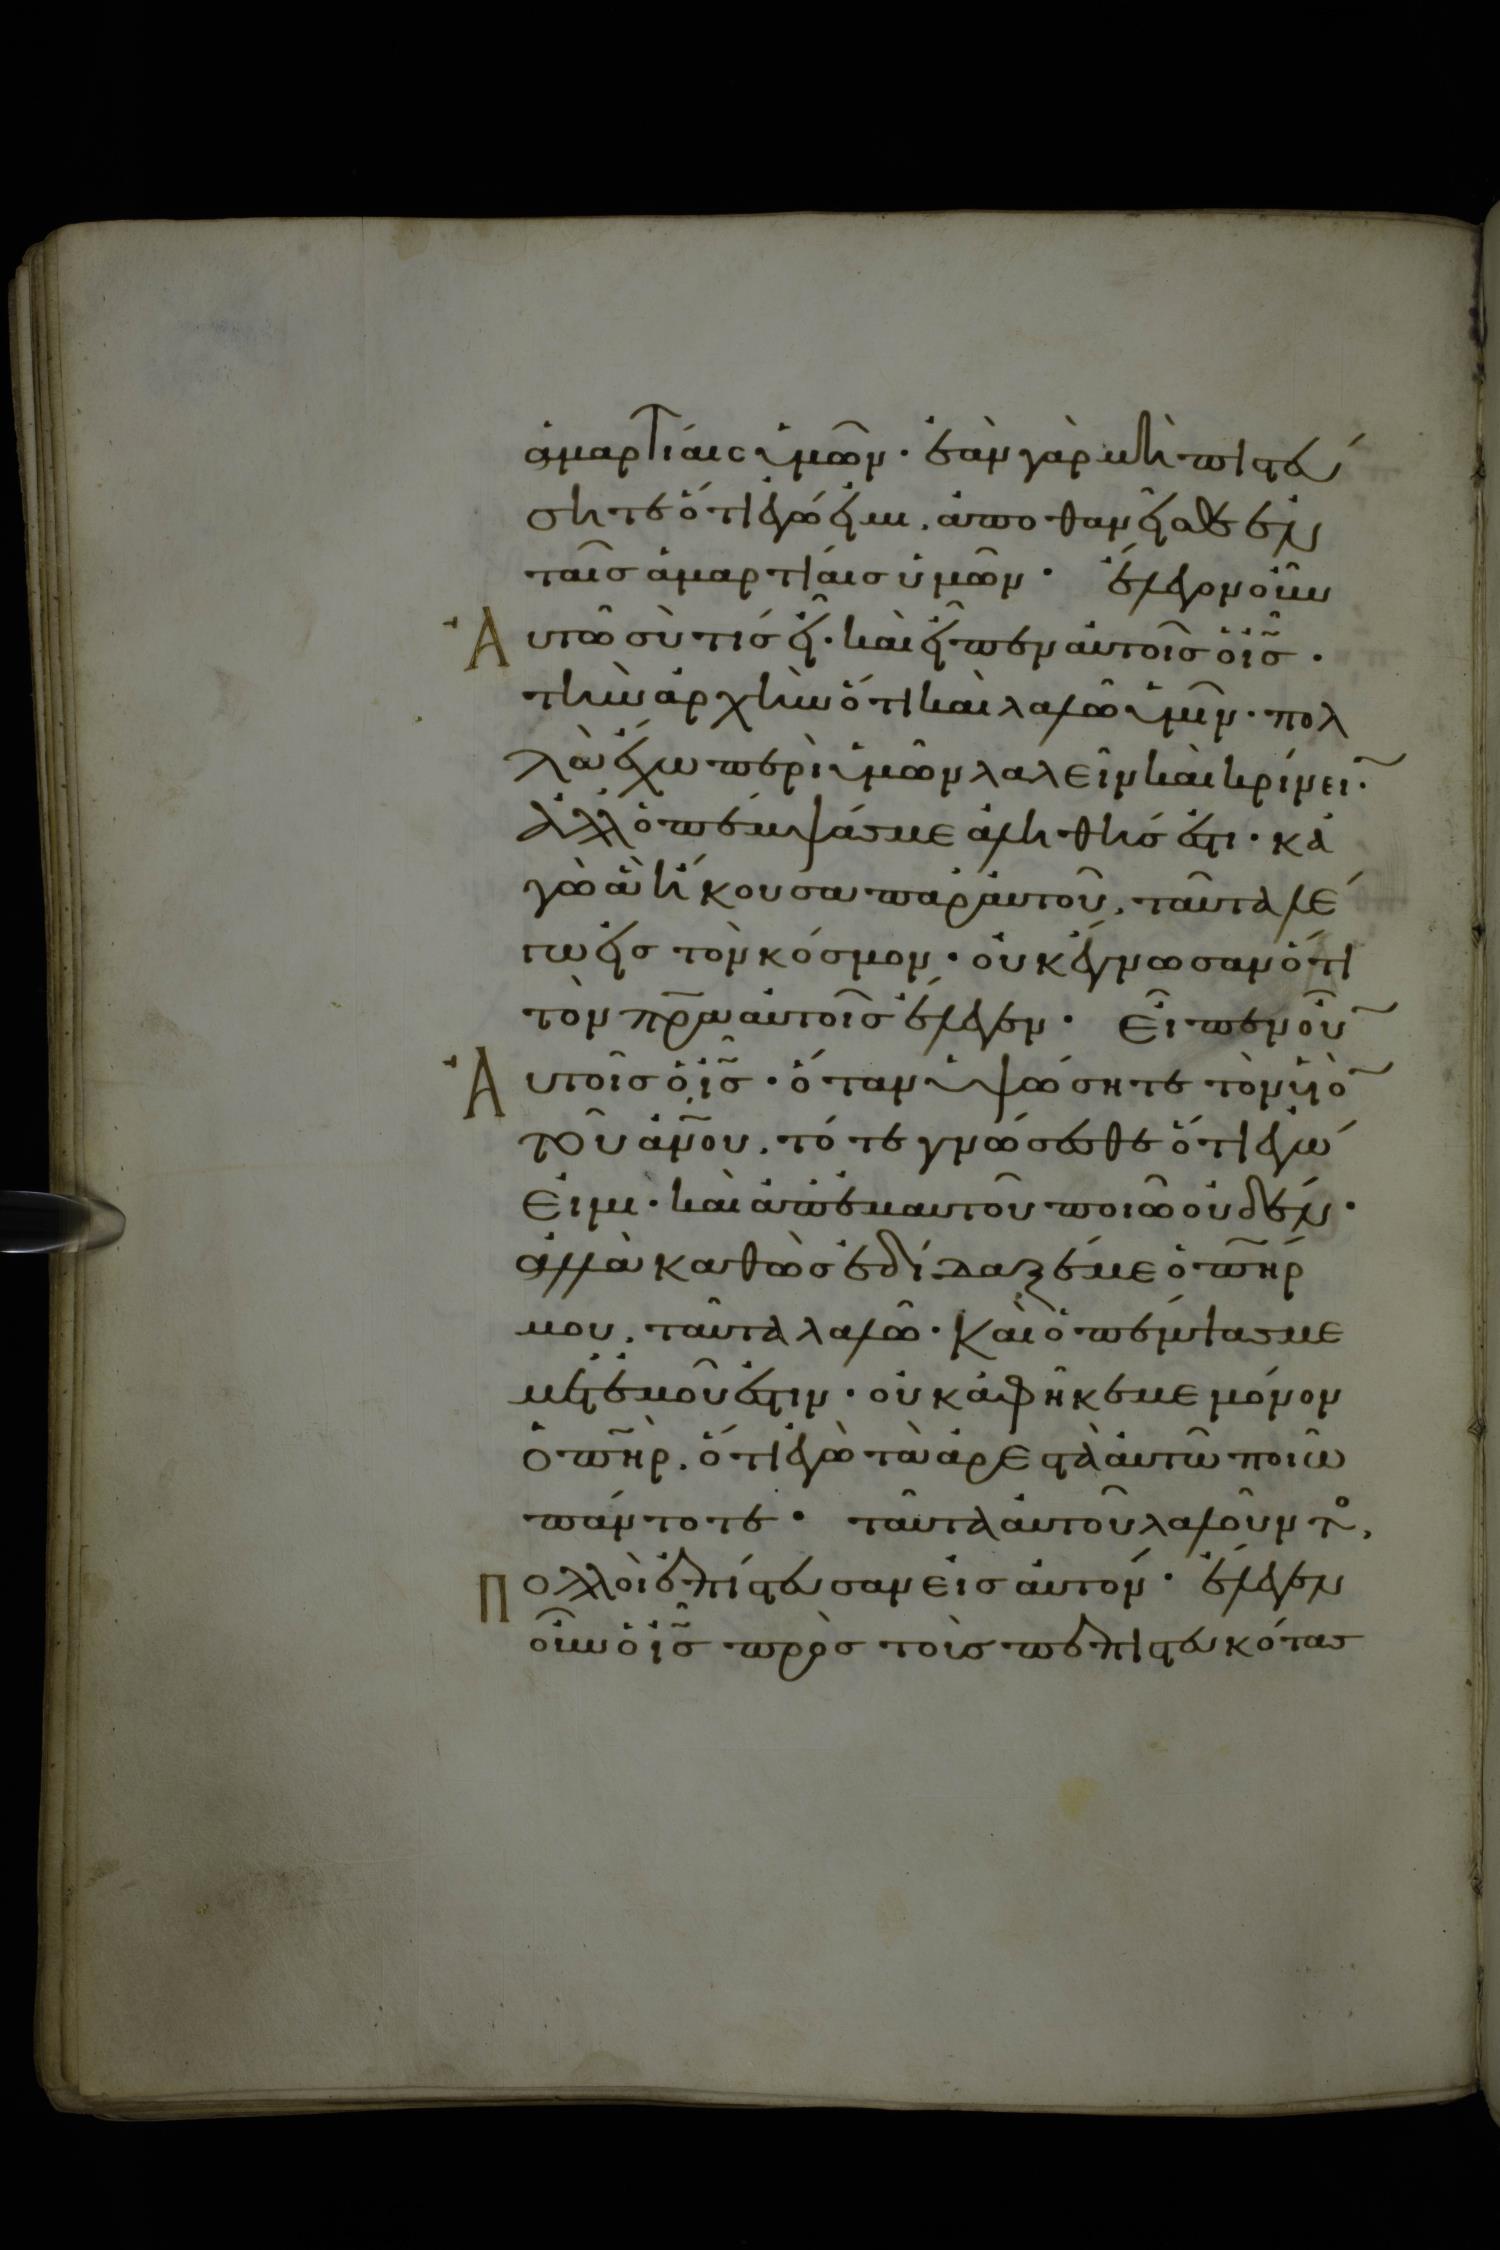 ἁμαρτίαις ὑμῶν· ἐὰν γὰρ μὴ πιστεύ
σητε ὅτι ἐγώ εἰμι, ἀποθανεῖσθε ἐν
ταῖς ἁμαρτίαις ὑμῶν· ἔλεγον οὖν
Ἀυτῶ σὺ τίς εἶ· καὶ εἶπεν αὐτοῖς ὁ ἰ̅ς̅·
τὴν ἀρχὴν ὅτι καὶ λαλῶ ὑμῖν· πολ
λὰ ἔχω περὶ ὑμῶν λαλεῖν καὶ κρίνει̅·
ἀλλ' ὁ πέμψας με ἀληθής ἐστι· κἀ
γὼ ἃ ἤκουσα παρ' αὐτοῦ, ταῦτα λέ
γω εἰς τὸν κόσμον· οὐκ ἔγνωσαν ὅτι
τὸν π̅ρ̅α̅ αὐτοῖς ἔλεγεν· Εἶπεν οὖ̅
Ἀυτοῖς ὁ ἰ̅ς̅· ὅταν ὑψώσητε τὸν υἱὸ̅
τοῦ ἀ̅ν̅ο̅υ̅, τότε γνώσεσθε ὅτι ἐγώ
εἰμι· καὶ ἀπ' ἐμαυτοῦ ποιῶ οὐδέν·
ἀλλὰ καθὼς ἐδίδαξέ με ὁ π̅η̅ρ̅
μου, ταῦτα λαλῶ· Καὶ ὁ πέμψας με
μετ' ἐμοῦ ἐστιν· οὐκ ἀφῆκέ με μόνον
ὁ π̅η̅ρ̅, ὅτι ἐγὼ τὰ ἀρεστὰ αὐτῶ ποιῶ
πάντοτε· ταῦτα αὐτοῦ λαλοῦντο̅ς,
Πολλοὶ ἐπίστευσαν εἰς αὐτόν· ἔλεγεν
οὖν ὁ ἰ̅ς̅ πρὸς τοὺς πεπιστευκότας